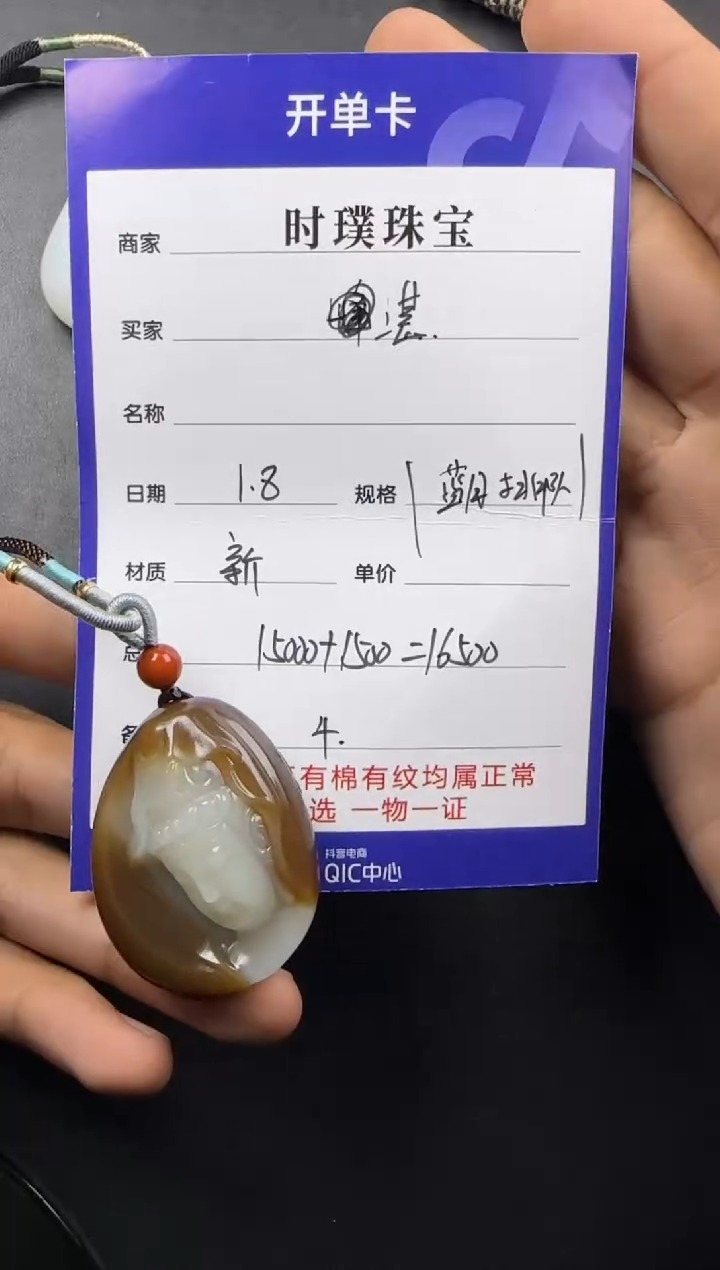 开单卡
商家 时璞珠宝
买家 湛.
名称
日期 1.8 规格 蓝月排队
材质 新 单价
总 15000+1500=16500
4.
有棉有纹均属正常
选 一物一证
抖音电商
QIC中心